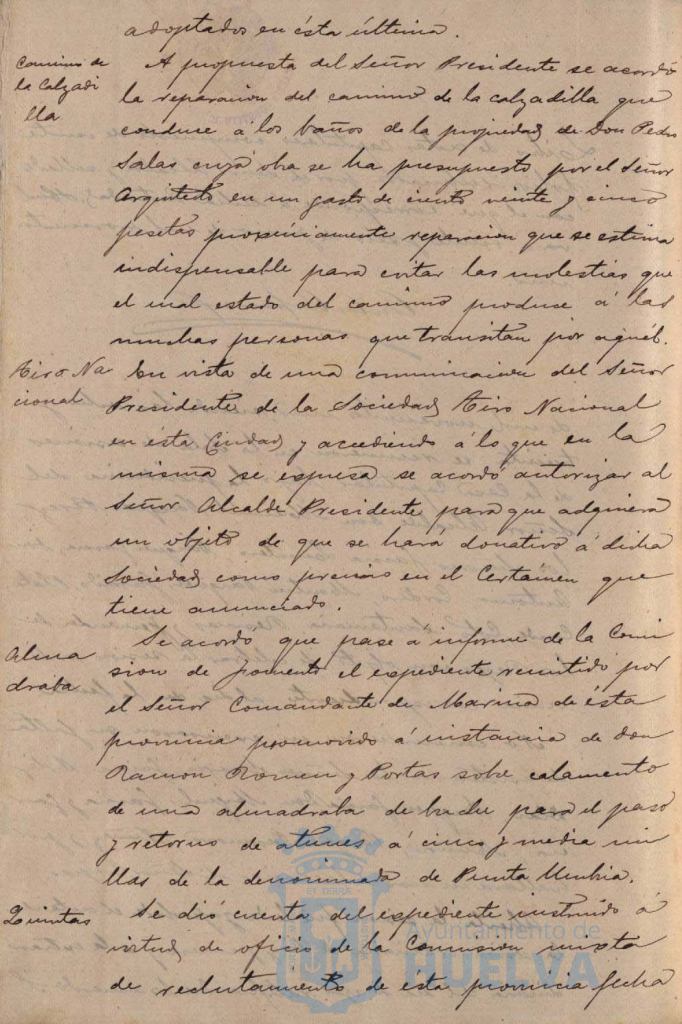 adoptados en ésta última.
Camino de
la Calzadi
lla
A propuesta del Señor Presidente se acordó
la reparacion del camino de la calzadilla que
conduce á los baños de la propiedad de Don Pedro
Salas cuya obra se ha presupuesto por el Señor
Arquitecto en un gasto de ciento veinte y cinco
pesetas proximamente reparacion que se estima
indispensable para evitar las molestias que
el mal estado del camino produce á las
muchas personas que transitan por aquél.
Tiro Na
cional
En vista de una comunicacion del Señor
Presidente de la Sociedad Tiro Nacional
en ésta Ciudad y accediendo á lo que en la
misma se expresa se acordó autorizar al
Señor Alcalde Presidente para que adquiera
un objeto de que se hará donativo á dicha
Sociedad como premio en el Certámen que
tiene anunciado.
Alma
draba
Se acordó que pase á informe de la Comi
sion de fomento el expediente remitido por
el Señor Comandante de Marina de ésta
provincia promovido á instancia de Don
Ramón Romeu y Portas sobre calamento
de una almadraba de buche para el paso
y retorno de atunes á cinco y media mi
llas de la denominada de Punta Umbria.
Quintas
Se dió cuenta del expediente instruido á
virtud de oficio de la Comision mixta
de reclutamiento de ésta provincia fecha
Ayuntamiento de
HUELVA